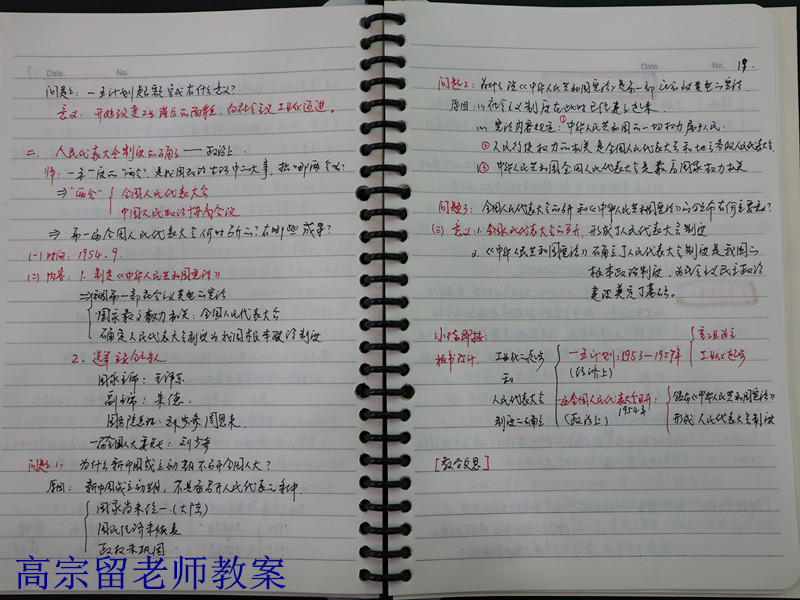 Date. No.
问题3: 一五计划超额完成有什么意义?
意义: 开始改变工业落后的面貌, 向社会主义工业化迈进。
二、人民代表大会制度的确立——政治上
师: 一年一度的"两会"是我国政治生活中的大事, 指哪两会?
⇒"两会" 全国人民代表大会
中国人民政治协商会议
⇒ 第一届全国人民代表大会何时召开的? 有哪些成果?
(一) 时间: 1954.9.
(二) 内容: 1. 制定《中华人民共和国宪法》
⇒我国第一部社会主义类型的宪法
国家最高权力机关: 全国人民代表大会
确定人民代表大会制度为我国根本政治制度
2. 选举
国家主席: 毛泽东
副主席: 朱德.
国务院总理: 周恩来.
刘少奇
问题1: 为什么新中国成立初期不召开全国人大?
原因: 新中国成立初期, 不具备召开人民代表大会条件
国家尚未统一 (大陆)
国民经济未恢复
政权未巩固.
Date. No. 19.
问题2: 为什么说《中华人民共和国宪法》是第一部社会主义类型的宪法.
原因: (1) 社会主义制度在此时已经建立起来
(2) 宪法内容规定: ①中华人民共和国的一切权力属于人民.
②人民行使权力的机关是全国人民代表大会和地方各级人民代表大会
③中华人民共和国全国人民代表大会是最高国家权力机关
问题3: 全国人民代表大会的召开和《中华人民共和国宪法》的公布有何重要意义?
(三) 意义: 1. 全国人民代表大会的召开, 形成了人民代表大会制度
2. 《中华人民共和国宪法》确立了人民代表大会制度是我国的
根本政治制度, 为社会主义民主政治
建设奠定了基础。
小结
板书设计. 工业化的起步 一五计划: 1953—1957年
和 (经济上) 工业化起步
人民代表大会 一届全国人民代表大会召开: 1954年 颁布《中华人民共和国宪法》
制度的确立 (政治上) 形成人民代表大会制度
[教学反思]
高宗留老师教案